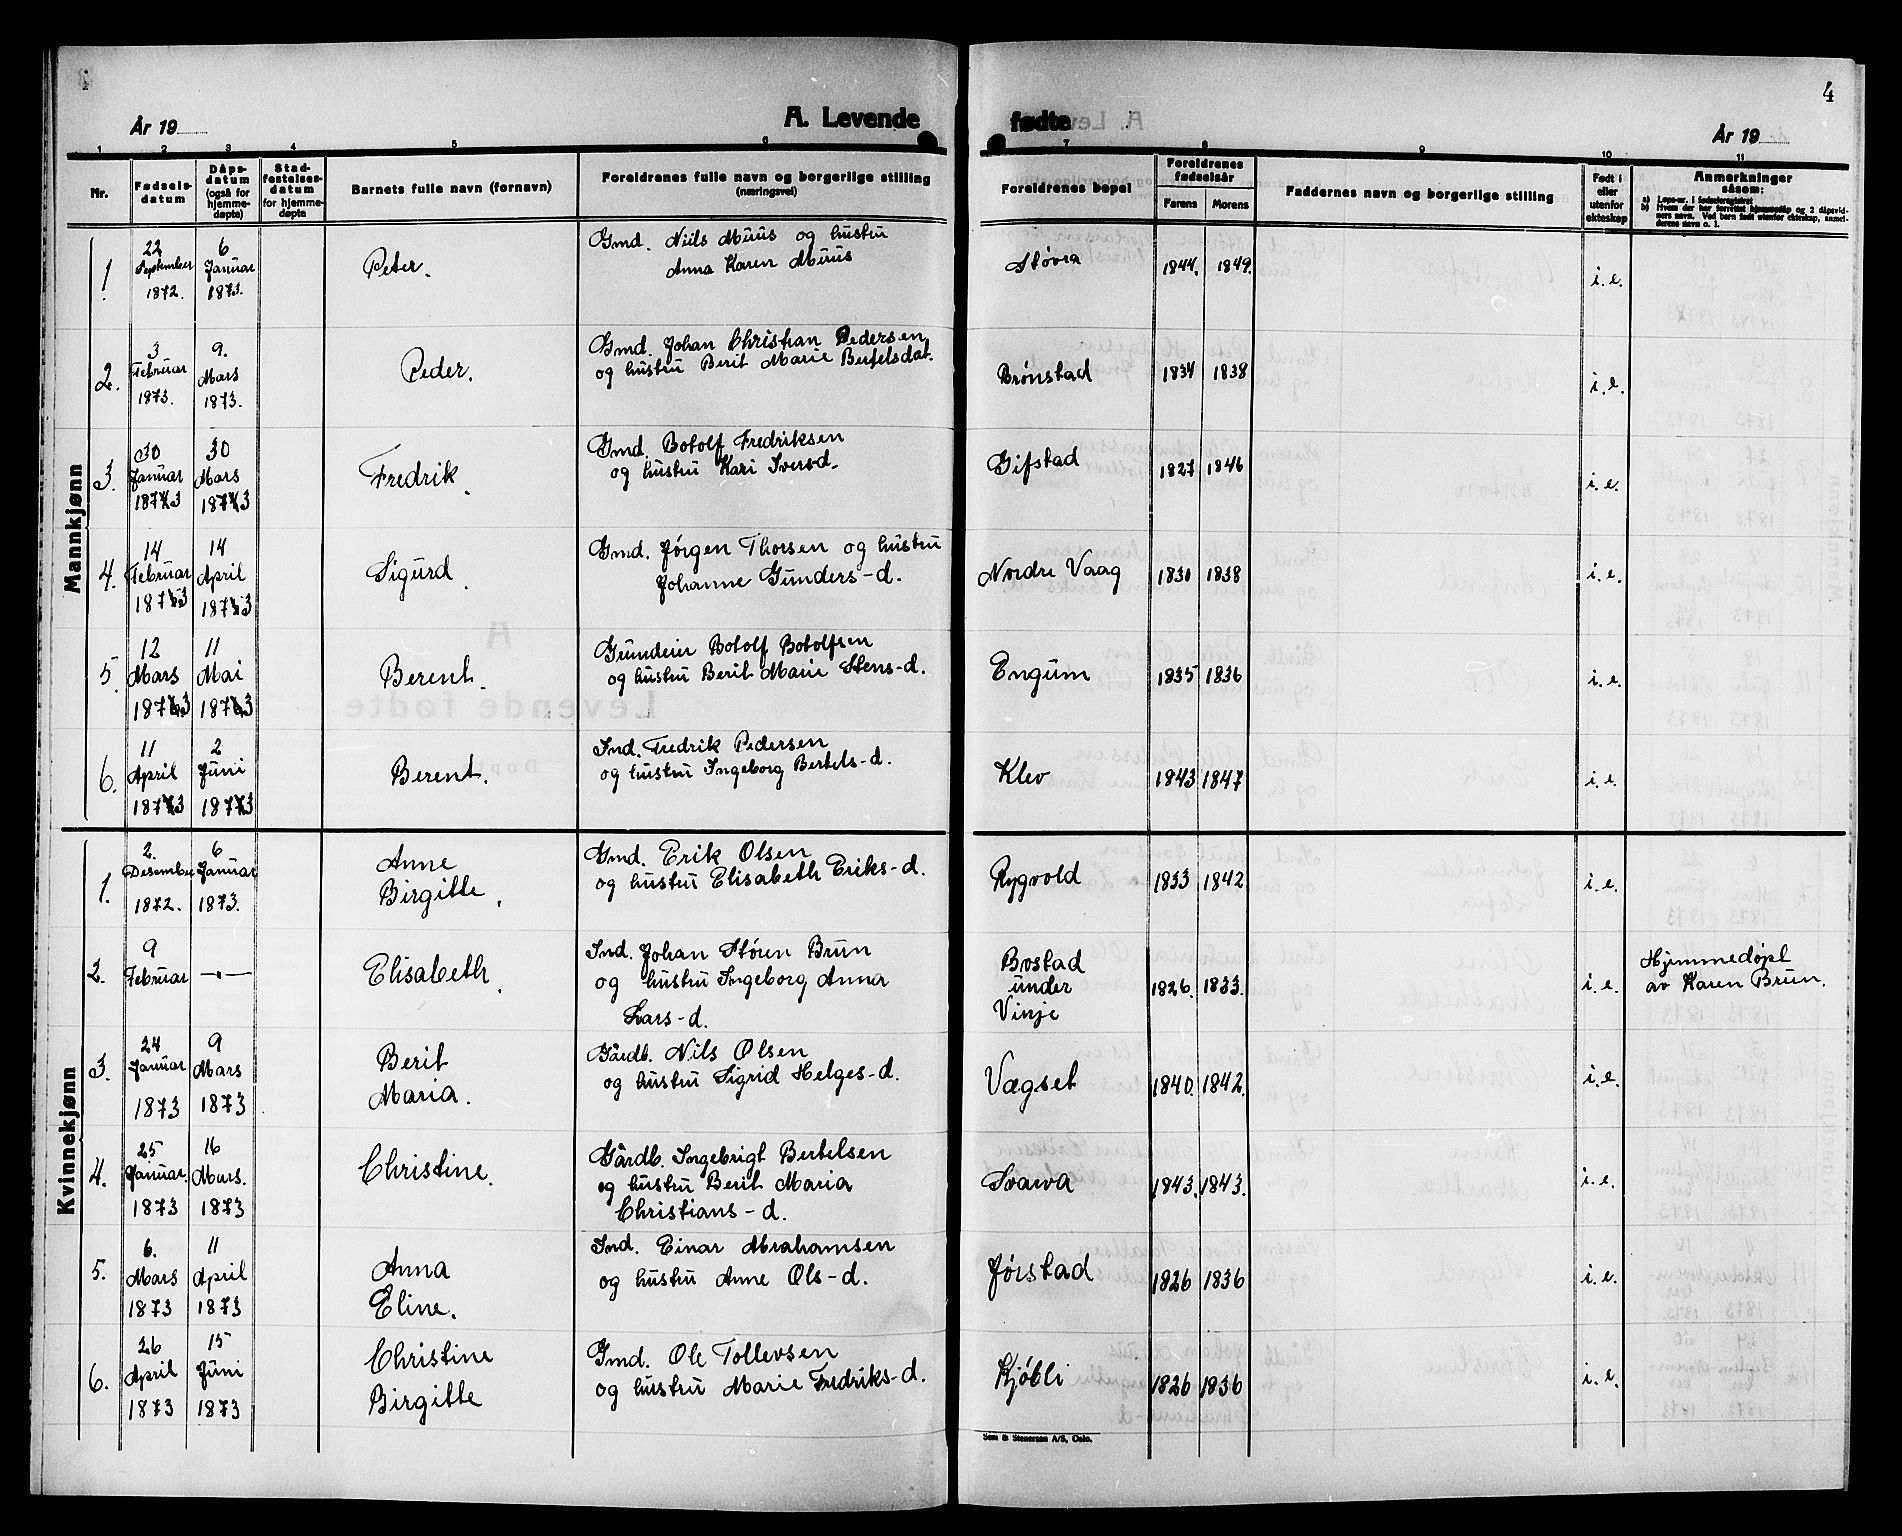 4
År 19
A. Levende
fødte
År 19
1 2 3 4 5 6 7 8 9 10 11
Nr.
Fødsels-
datum
Dåps-
datum
(også for
hjemme-
døpte)
Stad-
festelses-
datum
for hjemme-
døpte
Barnets fulle navn (fornavn)
Foreldrenes fulle navn og borgerlige stilling
(næringsvei)
Foreldrenes bopel
Foreldrenes
fødselsår
Farens Morens
Faddernes navn og borgerlige stilling
Født i
eller
utenfor
ekteskap
Anmerkninger
såsom:
a) Løpe-nr. i fødselsregistret
b) Hvem der har forrettet hjemmedåp og 2 dåpsvid-
ners navn. Ved barn født utenfor ekteskap, anmel-
derens navn o. l.
Mannkjønn
1. 22 September 1872. 6 Januar 1873. Peter. Gmd. Niils Muus og hustru
Anna Karen Muus Støvra 1844. 1849. i. e.
2. 3 Februar 1873. 9. Mars 1873. Peder. Gmd. Johan Christian Pedersen
og hustru Berit Marie Bertelsdat. Brønstad 1834 1838 i. e.
3. 30 Januar 1873 30 Mars 1873 Fredrik. Gmd. Botolf Fredriksen
og hustru Kari Ivers-d. Gifstad 1827 1846 i. e.
4. 14 Februar 1873 14 April 1873 Sigurd. Gmd. Jørgen Thorsen og hustru
Johanne Gunders-d. Nordre Vaag 1830 1838 i. e.
5. 12 Mars 1873 11 Mai 1873 Berent. Grundeier Botolf Botolfsen
og hustru Berit Marie Stens-d. Engum 1835 1836 i. e.
6. 11 April 1873 2 Juni 1873 Berent. Ind. Fredrik Pedersen
og hustru Ingeborg Bertels-d. Klev 1843 1847 i. e.
Kvinnekjønn
1. 2. Desember 1872. 6 Januar 1873. Anne
Birgitte. Gmd. Erik Olsen
og hustru Elisabeth Eriks-d. Rygvold 1833 1842 i. e.
2. 9 Februar —"— Elisabeth. Ind. Johan Støren Brun
og hustru Ingeborg Anna
Lars-d. Bostad
under
Vinje 1826. 1833. i. e. Hjemmedøpt
av Karen Brun.
3. 24 Januar 1873 9 Mars 1873 Berit
Maria. Gårdb. Nils Olsen
og hustru Sigrid Helges-d. Vægset 1840. 1842. i. e.
4. 25 Januar. 1873 16 Mars. 1873 Christine. Gårdb. Ingebrigt Bertelsen
og hustru Berit Maria
Christians-d. Svarva 1843. 1843. i. e.
5. 6. Mars 1873 11 April 1873 Anna
Eline. Ind. Einar Abrahamsen
og hustru Anne Ols-d. Jørstad 1826 1836 i. e.
6. 26 April 1873 15 Juni 1873 Christine
Birgitte Gmd. Ole Tollevsen
og hustru Marie Fredriks-d. Kjøbli 1826 1836 i. e.
Sem & Stenersen A/S, Oslo.